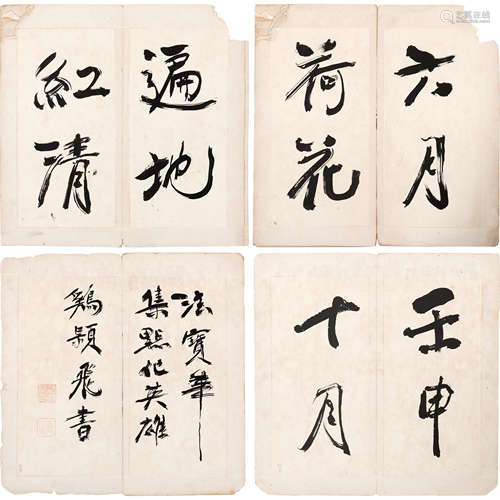 六月
荷花
遍地
紅清
壬申
十月
法寶華
集點化英雄
鷄頴飛書